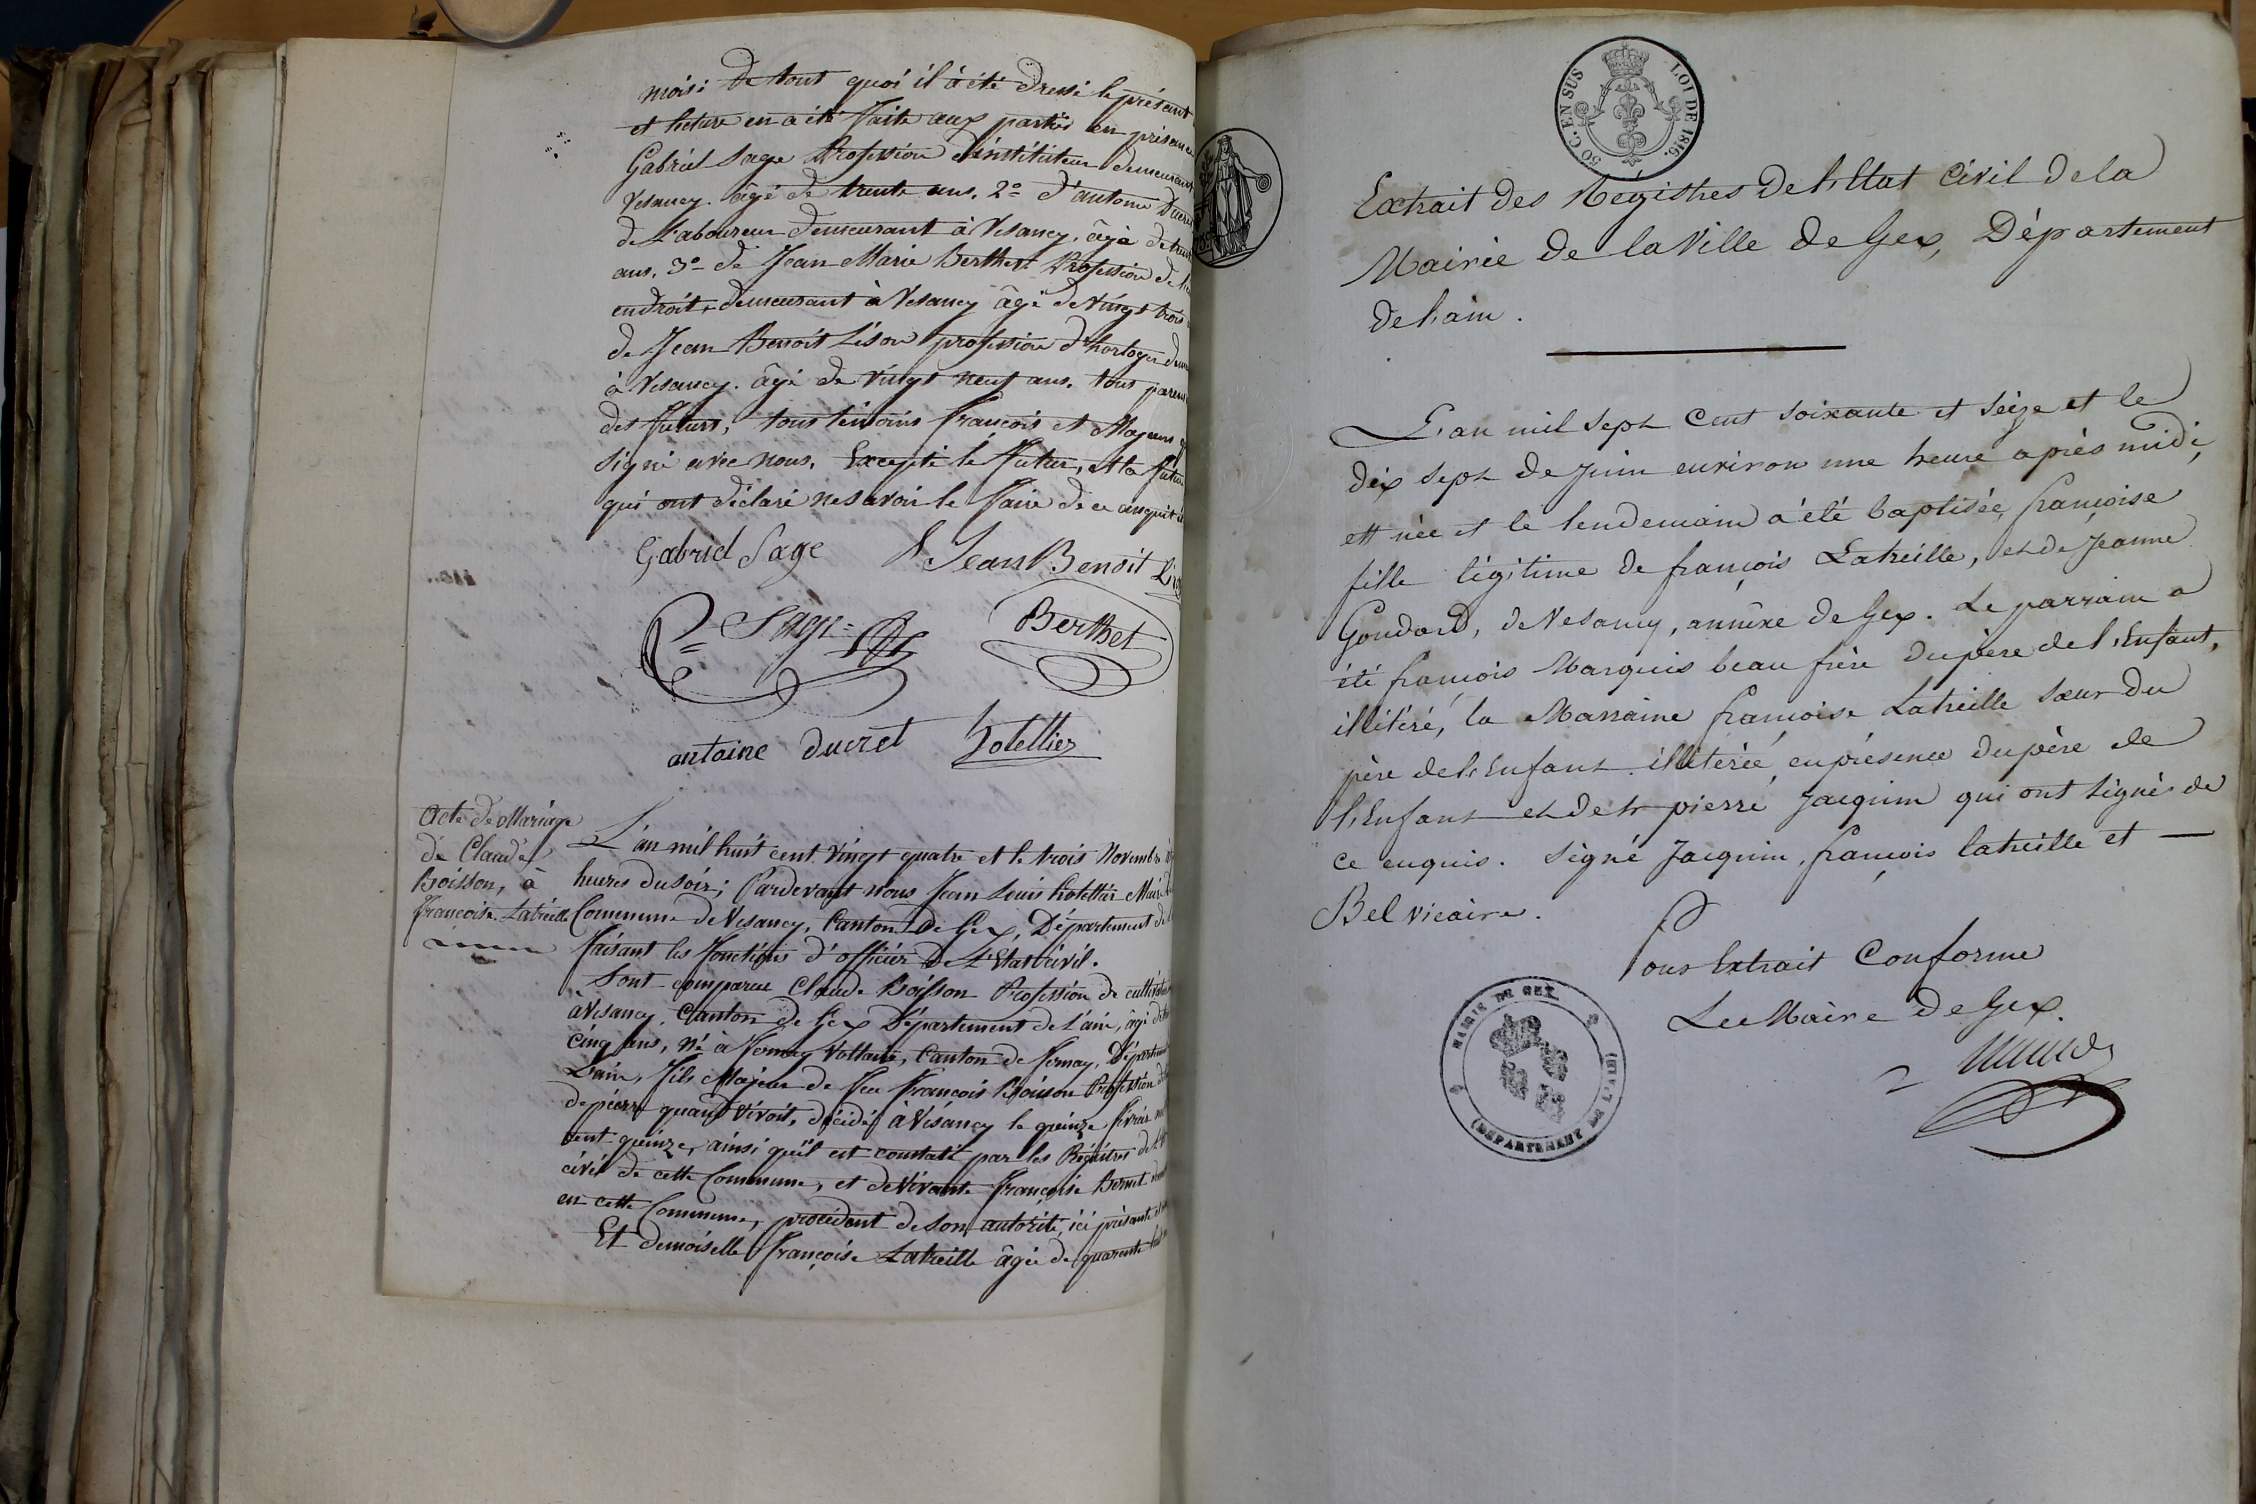 mois: De tout quoi il à été dressé le présent
et lecture en a été faite aux parties en présence
Gabriel Sage Profession d'instituteur demeurant
Vesancy. âgé de trente ans. 2º d'antoine Ducret
de Laboureur demeurant à Vesancy, âgé de
ans. 3º de Jean Marie Berthet Profession de
endroit, demeurant à Vesancy âgé de vingt trois
de Jean Benoit Lison profession d'horloger
à Vesancy. âgé de vingt neuf ans. tous parens
des futurs, tous témoins français et Majeurs
signé avec nous, Excepté le futur, et la future
qui ont déclaré ne savoir le faire de ce enquis
Gabriel Sage Jean Benoit
Sage Berthet
antoine ducret hotellier
Acte de Mariage
de Claude
Boisson, à
françoise Latreille
L'an mil huit cent vingt quatre et le trois Novembre
heures du soir; Pardevant nous Jean Louis hotellier Maire
Commune de Vesancy, Canton de Gex, Département de
faisant les fonctions d'officier de L'Etat civil.
Sont comparus Claude Boisson Profession de
à Vesancy, Canton de Gex Département de L'ain, âgé de
cinq ans, né à Fernay Voltaire, Canton de Fernay, Département
L'ain, fils Majeur de feu François Boisson Profession
de pierre quand vivoit, décédé à Vésancy le quinze février
cent quinze, ainsi qu'il est constaté par les Régistres de
civil de cette Commune, et de vivante françoise Bernet
en cette Commune, procédant de son autorité, ici présente
Et demoiselle françoise Latreille âgée de quarante
50 C. EN SUS LOI DE 1816.
Extrait des Régistres de l'Etat Civil de la
Mairie de la Ville de Gex, Département
de l'ain.
L'an mil sept cent soixante et seize et le
dix sept de juin environ une heure après midi,
est née et le lendemain a été baptisée, françoise
fille légitime de françois Latreille, et de Jeanne
Goudard, de Vesancy, annexe de Gex. Le parrain a
été françois Marquis beau frère du père de l'Enfant,
illitéré, la Marraine françoise Latreille sœur du
père de l'Enfant illitérée, en présence du père de
l'Enfant et de sr pierre Jacquin qui ont signés de
ce enquis. Signé Jacquin, françois latreille et —
Bel vicaire.
Pour Extrait Conforme
Le Maire de Gex.
MAIRIE DE GEX
(DEPARTEMENT DE L'AIN)